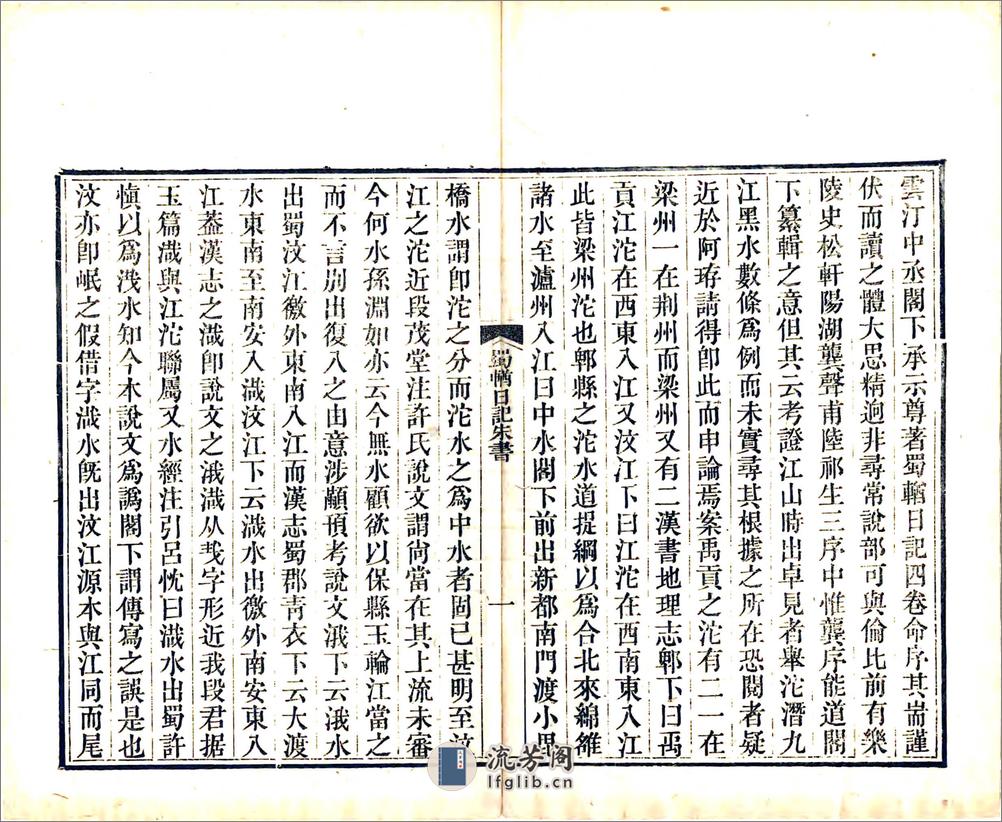 雲汀中丞閣下承示尊著蜀輶日記四卷命序其耑謹
伏而讀之體大思精迥非尋常說部可與倫比前有樂
陵史松軒陽湖龔聲甫陸祁生三序中惟龔序能道閣
下纂輯之意但其云考證江山時出卓見者舉沱潛九
江黑水數條為例而未實尋其根據之所在恐閱者疑
近於阿㳺請得卽此而申論焉案禹貢之沱有二一在
梁州一在荆州而梁州又有二漢書地理志郫下曰禹
貢江沱在西東入江又汶江下曰江沱在西南東入江
此皆梁州沱也郫縣之沱水道提綱以為合北來綿雒
諸水至瀘州入江曰中水閣下前出新都南門渡小毘
蜀輶日記朱書
一
橋水謂卽沱之分而沱水之為中水者固已甚明至汶
江之沱近段茂堂注許氏說文謂尙當在其上流未審
今何水孫淵如亦云今無水顧欲以保縣玉輪江當之
而不言別出復入之由意涉顢頇考說文涐下云涐水
出蜀汶江徼外東南入江而漢志蜀郡青衣下云大渡
水東南至南安入渽汶江下云渽水出徼外南安東入
江葢漢志之渽卽說文之涐渽从㦲字形近我段君据
玉篇渽與江沱聯屬又水經注引呂忱曰渽水出蜀許
愼以為涐水知今本說文為譌閣下謂傳寫之誤是也
汶亦卽岷之假借字渽水旣出汶江源本與江同而尾
流芳阁
lfglib.cn